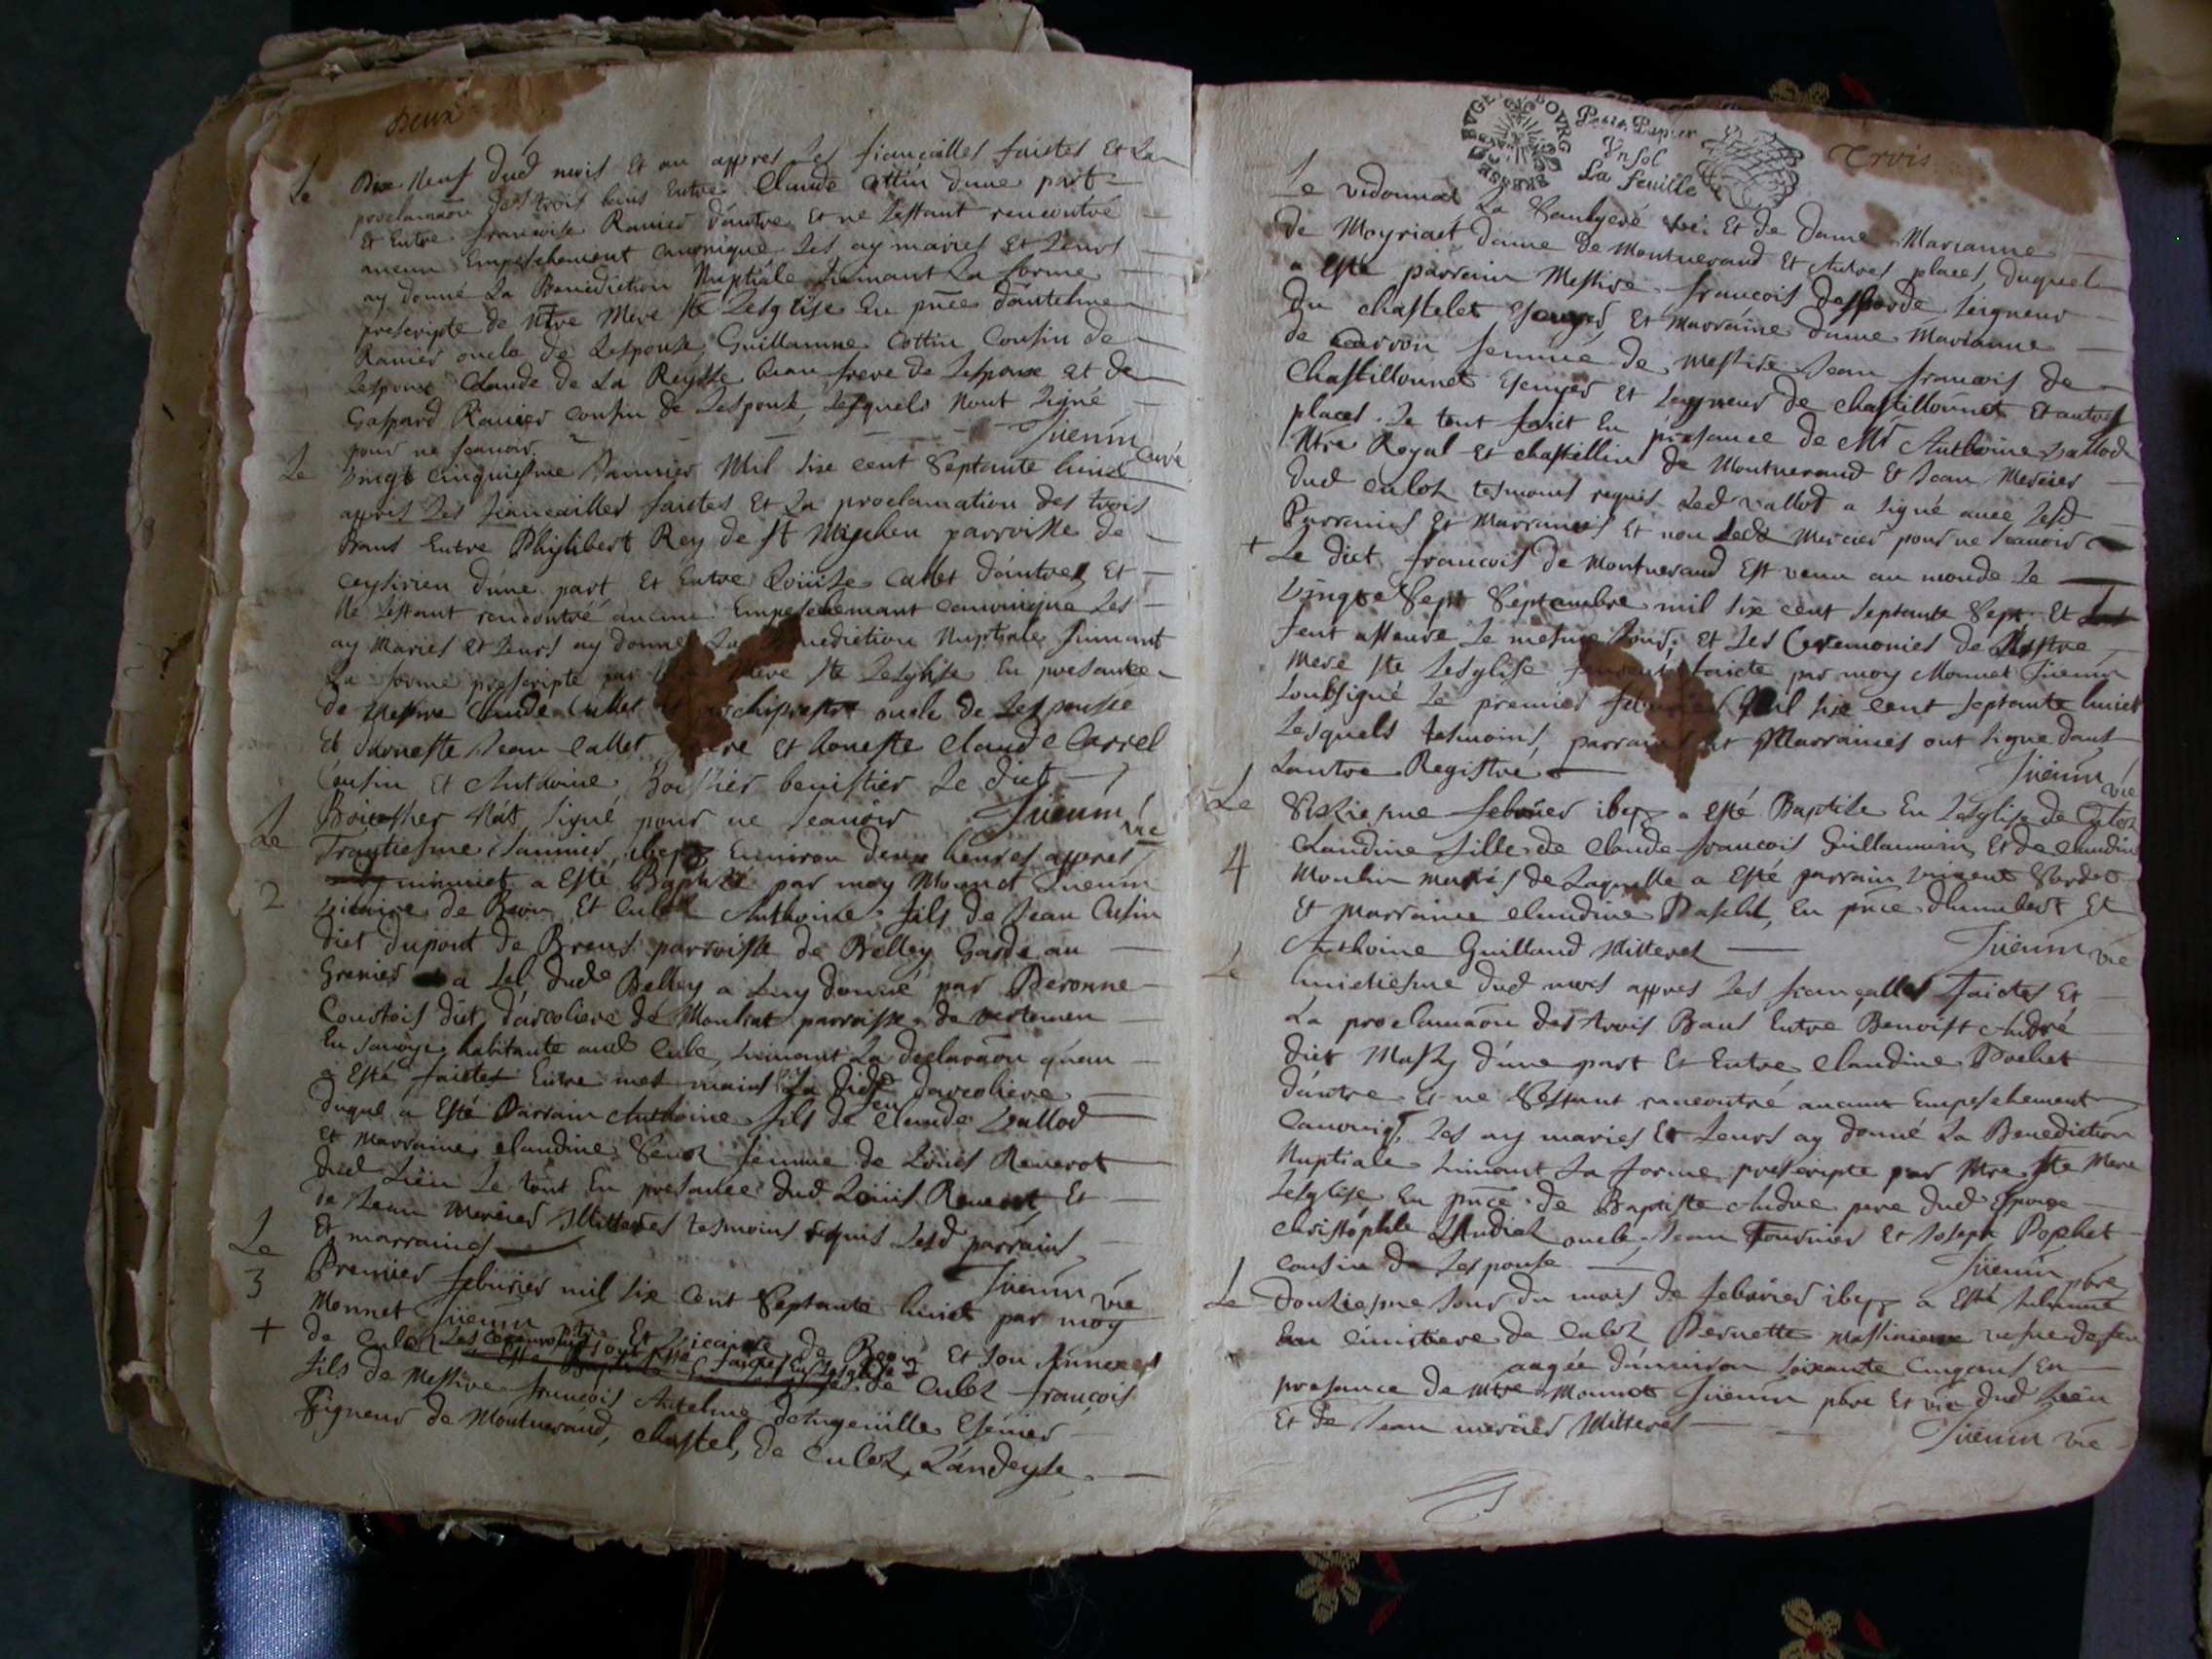 Deux
Le Dix Neuf dud mois et an appres les fiançailles faictes et la
proclamaõn des trois bans Entre Claude Cottin dune part
Et Entre francoise Ranier dautre Et ne sestant rencontré
aucun Empeschement canonique les ay mariés Et leurs
ay donné la Benediction Nuptiale suivant la forme
prescripte de Nre Mere Ste Lesglise En pñce dantelme
Ranier oncle de Lespouse Guillaume Cottin Cousin de
Lespoux Claude de La Reysse beau frere de Lespoux et de
Gaspard Ranier cousin de Lespouse, lesquels nont signé
pour ne scavoir. Juenin Curé
Le vingt cinquiesme Jannier Mil six cent Septante huict
appres les fiancailles faictes Et la proclamation des trois
Bans Entre Philibert Rey de St Mychen parroisse de
Ceysirieu dune part Et Entre Louïse Callet dautre, Et
Ne sestant rencontré aucun Empeschemant canonique les
ay Mariés et leurs ay donné La Benediction Nuptiale suinant
La forme prescripte par Mere Ste Lesglise En presance
de Messire Claude Callet archiprestre oncle de Lespouse
Et dhoneste Jean Callet frere Et honeste Claude Carrel
Cousin Et Anthoine benistier Le dict
Nat signé pour ne scavoir Juenin vie
Le Trantiesme Jannier Environ deux heures appres
minuict a Esté Baptisé par moy Monnet Juenin
2 vicaire de Beon Et Culoz Anthoine fils de Jean Cusin
dict dupont de Brens parroisse de Belley Garde au
Grenier a sel dud Belley a Luy donné par Peronne
Courtois dict darcoliere de parroisse de
En Savoye habitante aud Culoz suinant la declaraõn quen
a Esté faictes Entre mes mains la dicte darcoliere
Duquel a Esté Parrain Anthoine fils de Claude Vallod
Et Marraine Claudine femme de Louïs Reverot
dud Lieu Le tout En presance dud Louïs Reverot Et
de Jean Mercier tesmoins requis Lesd parrains
Et marraines Juenin vie
Le Premier febvrier mil six Cent Septante huict par moy
3 Monnet Juenin ptre Et vicaire de Beon Et son Annexe
+ de Culoz Les ceremonies ont esté faictes En Lesglise de Culoz francois
fils de Messire francois Anthelme Escuier
Seigneur de Montuerand, Chastel, de Culoz, Landeyse
BUGEY BOURG BRESSE
Petit Papier
Vn sol
La feuille
Trois
Le vidonnat La Et de dame Marianne
de Moyriact dame de Montuerand Et Autres places, duquel
a Esté parrain Messire francois seigneur
du Chastelet Escuyer Et Marraine dame Marianne
de femme de Messire Jean francois de
Chastillonnet Escuyer Et seigneur de Chastillonnet Et autres
places. Le tout faict En presance de Mr Anthoine Vallod
Ntre Royal Et chastellin de Montuerand Et Jean Mercier
dud Culoz tesmoins requis Led Vallod a signé avec Lesd
Parrains Et Marraines Et non Led Mercier pour ne scavoir
+ Le dict francois de Montuerand Est venu au monde Le
vingt Sept Septembre mil six cent septante Sept Et
feut le mesme Jour, Et Les Ceremonies de Nostre
Mere Ste Lesglise feurent faicte par moy Monnet Juenin
Soubsigné Le premier febvrier Mil six cent septante huict
Lesquels tesmoins, parrains Et Marraines ont signé dans
Lautre Registre Juenin vie
Le Sixiesme febvrier a Esté Baptisée En Lesglise de Culoz
4 Claudine fille de Claude francois Guillaumin Et de Claudine
Moulin mariés de Laquelle a Esté parrain
Et Marraine Claudine En pñce dhumbert Et
Anthoine Guilland Juenin vie
Le huictiesme dud mois appres Les fiançalles faictes Et
La proclamaõn des trois Bans Entre Benoist André
dict dune part Et Entre Claudine Pochet
dautre Et ne Sestant rancontré aucuns Empeschement
Canoniq, Les ay mariés Et Leurs ay donné La Benediction
Nuptiale suinant La forme prescripte par Ntre Ste Mere
Lesglise En pñce de Baptiste Andre pere dud Espoux
Christophle oncle Jean fournier Et Joseph Pochet
cousin de Lespouse Juenin pbre
Le Douziesme Jour du mois de febvrier a Esté Inhumée
au Cimistiere de Culoz Pernette vefve de feu
aagée denviron soixante Cinq ans En
presance de Mtre Monnet Juenin pbre Et vie dud Lieu
Et de Jean mercier Juenin vie